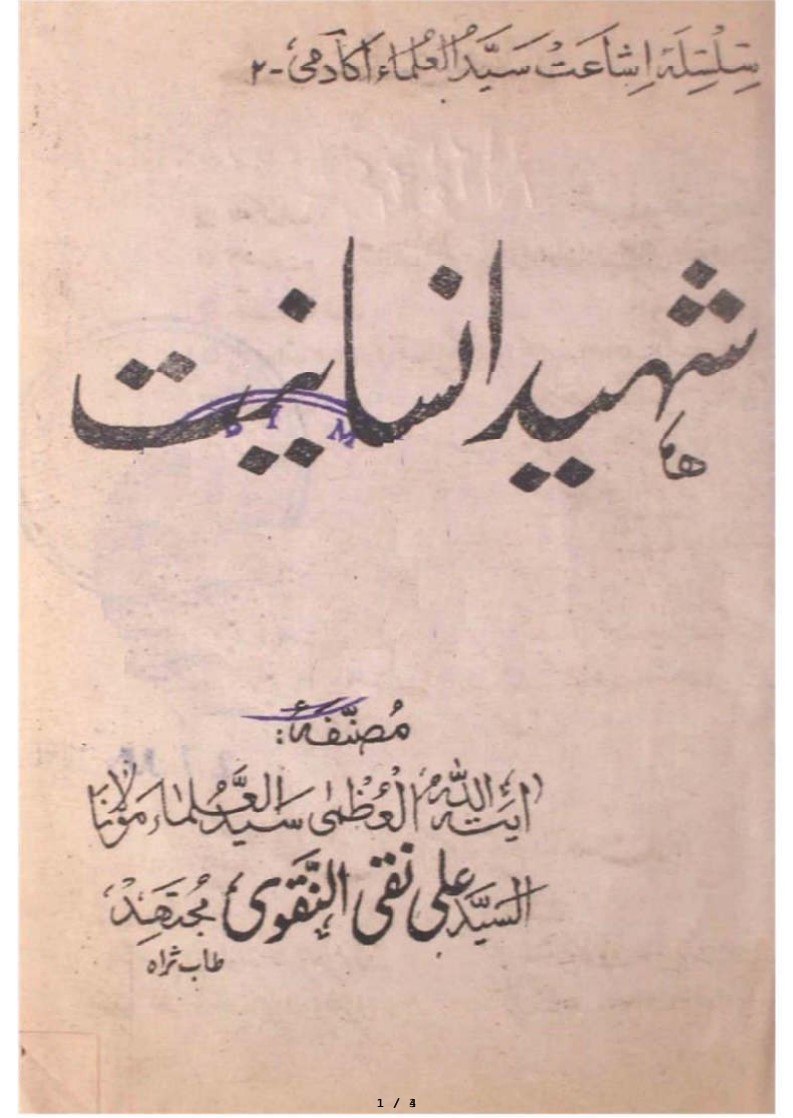 سِلْسِلَۂ اِشَاعَتْ سَیَّدُ الْعُلَماء اکادمیؒ - ۲
شہید انسانیت
مُصَنَّفہٗ:
اٰیَتہ اللّٰہُ الْعُظمٰی سَیدُ العُلَماء مَوْلَانَا
السیَّد علی نقی النَّقَوی مُجتَھِدْ
طاب ثراہ
D I M
1 / 4